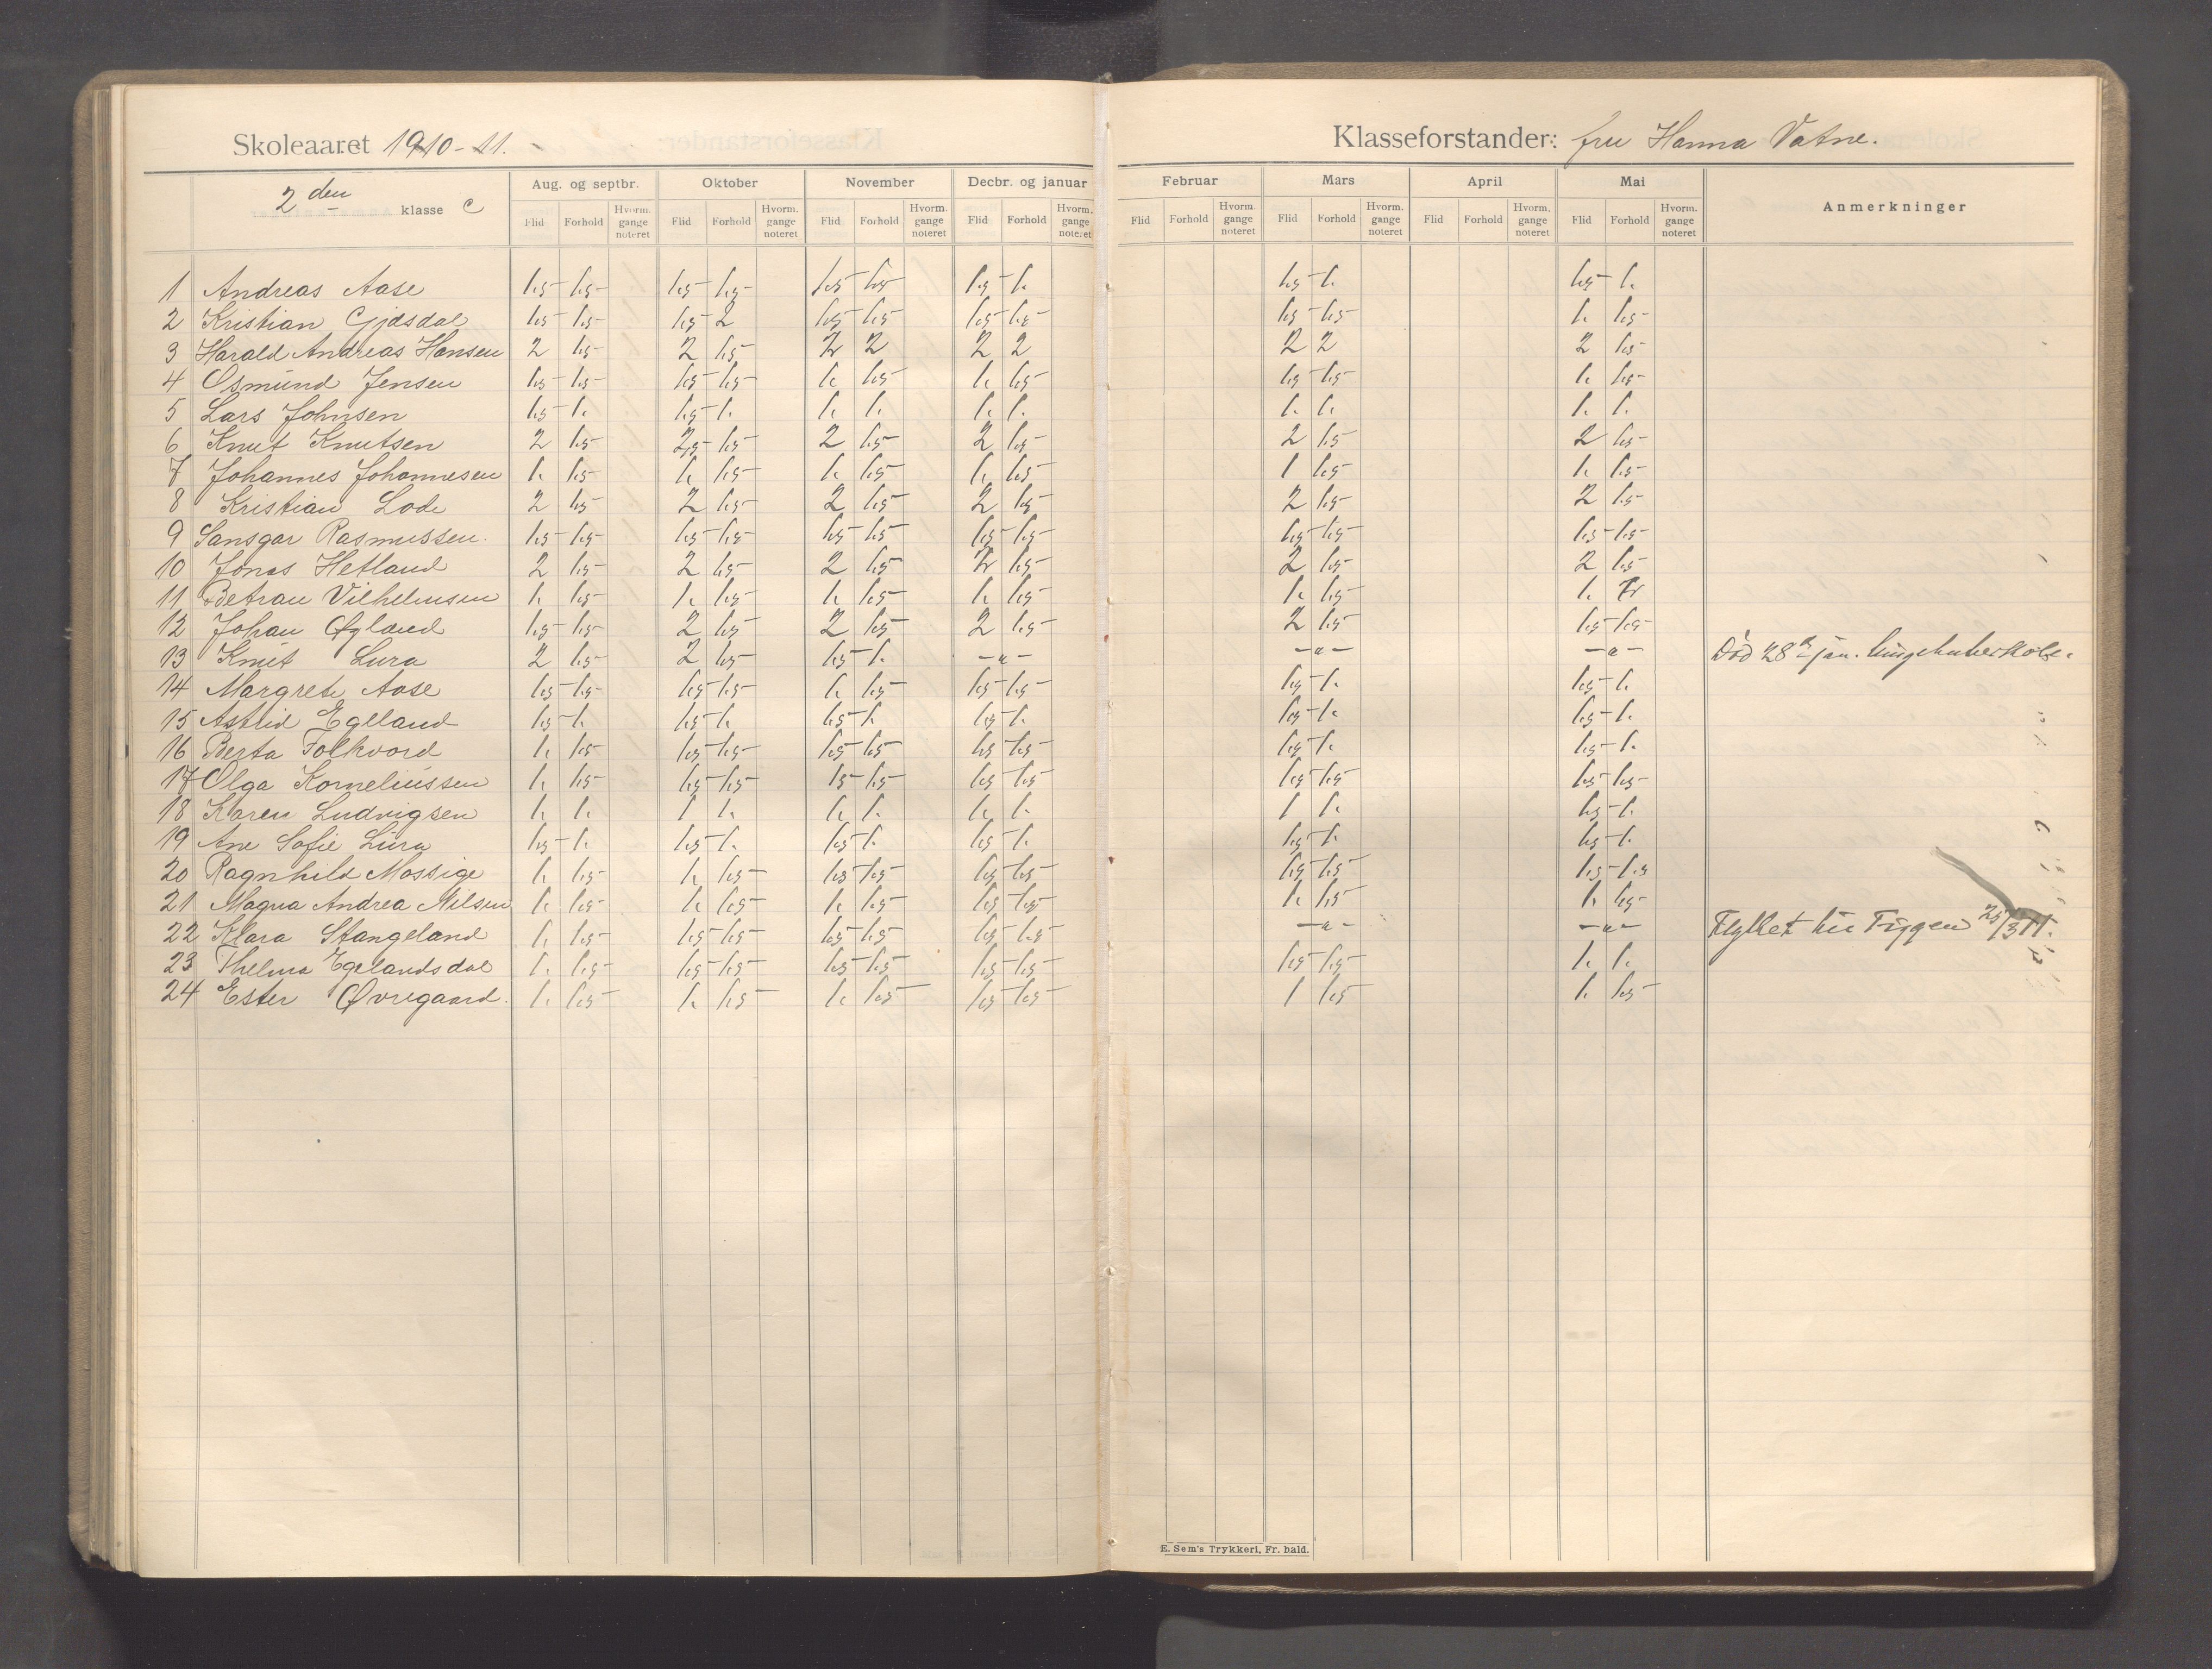 Skoleaaret 1910-11.
Klasseforstander: fru Hanna Vatne.
2den klasse C
Aug. og septbr. Oktober November Decbr. og januar Februar Mars April Mai Anmerkninger
Flid Forhold Hvorm. gange noteret Flid Forhold Hvorm. gange noteret Flid Forhold Hvorm. gange noteret Flid Forhold Hvorm. gange noteret Flid Forhold Hvorm. gange noteret Flid Forhold Hvorm. gange noteret Flid Forhold Hvorm. gange noteret Flid Forhold Hvorm. gange noteret
1 Andreas Aase 1.5 1.5 1.5 1.5 1.5 1.5 1.5 1. 1.5 1. 1.5 1.
2 Kristian Gjdsdal 1.5 1.5 1.5 2 1.5 1.5 1.5 1.5 1.5 1.5 1. 1.5
3 Harald Andreas Hansen 2 1.5 2 1.5 2 2 2 2 2 2 2 1.5
4 Osmund Jensen 1.5 1.5 1.5 1.5 1. 1.5 1. 1.5 1.5 1.5 1. 1.5
5 Lars Johnsen 1.5 1. 1.5 1. 1. 1. 1. 1. 1. 1. 1. 1.
6 Knut Knutsen 2 1.5 1.5 2 1.5 2 1.5 2 1.5 2 1.5
7 Johannes Johannesen 1. 1.5 1. 1.5 1. 1.5 1. 1.5 1 1.5 1. 1.5
8 Kristian Lode 2 1.5 2 1.5 2 1.5 2 1.5 2 1.5 2 1.5
9 Sansgar Rasmussen. 1.5 1.5 1.5 1.5 1.5 1.5 1.5 1.5 1.5 1.5 1.5 1.5
10 Jonas Hetland 2 1.5 2 1.5 2 1.5 2 1.5 2 1.5 2 1.5
11 Betrau Vilhelmsen 1. 1.5 1. 1.5 1. 1.5 1. 1.5 1. 1.5 1.
12 Johan Øgland 1.5 1.5 2 1.5 2 1.5 2 1.5 2 1.5 1.5 1.5
13 Knut Lura 2 1.5 2 1.5 1.5 1. -"- -"- -"- Død 28de jan.
14 Margrete Aase 1.5 1.5 1.5 1.5 1. 1.5 1.5 1.5 1.5 1. 1.5 1.
15 Astrid Egeland 1.5 1. 1.5 1. 1.5 1. 1.5 1. 1.5 1. 1.5 1.
16 Berta Folkvord 1. 1.5 1.5 1.5 1.5 1.5 1.5 1.5 1.5 1. 1.5 1.
17 Olga Korneliussen 1. 1.5 1.5 1.5 1.5 1.5 1.5 1.5 1.5 1.5 1.5 1.5
18 Karen Ludvigsen 1. 1. 1 1. 1. 1. 1. 1. 1 1. 1.5 1.
19 Ane Sofie Lura 1.5 1. 1.5 1. 1.5 1. 1.5 1. 1.5 1. 1.5 1.
20 Ragnhild Mossige 1. 1.5 1. 1.5 1.5 1.5 1.5 1.5 1.5 1.5 1.5 1.5
21 Magna Andrea Nilsen 1. 1.5 1. 1.5 1. 1.5 1.5 1.5 1. 1.5 1. 1.5
22 Klara Stangeland 1. 1.5 1.5 1.5 1.5 1.5 1.5 1.5 -"- -"- Flyttet til Figgen 25/3 11.
23 Thelma Egelandsdal 1. 1.5 1.5 1.5 1.5 1.5 1.5 1.5 1.5 1.5 1. 1.
24 Ester Øvregaard. 1. 1.5 1. 1.5 1. 1.5 1.5 1.5 1 1.5 1. 1.5
E. Sem's Trykkeri, Fr. hald.